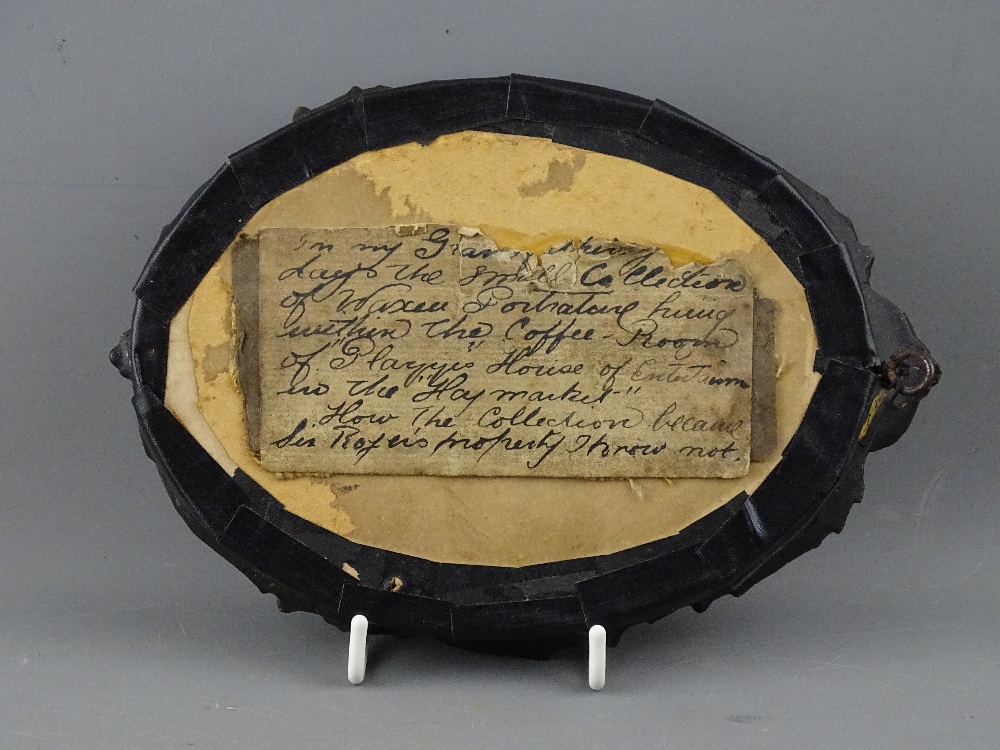 In my
days the Small Collection
of Waxen Portrature hung
within the Coffee-Room
of "Playys" House of
in the "Haymarket"
How the Collection became
Sir Roger's property I know not.